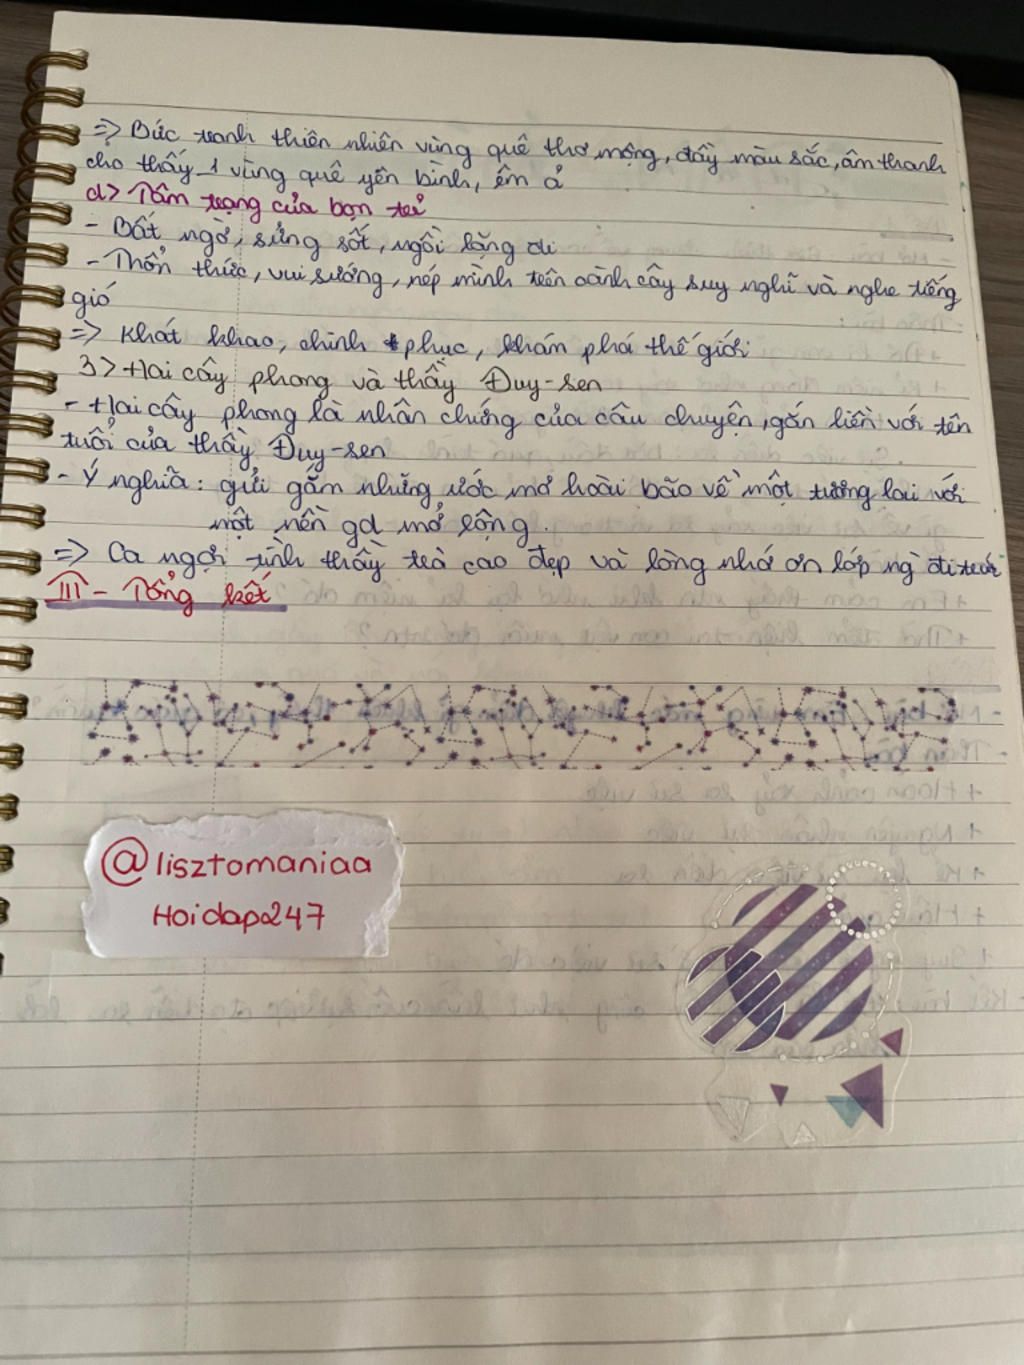 => Bức tranh thiên nhiên vùng quê thơ mộng, đầy màu sắc, âm thanh
cho thấy 1 vùng quê yên bình, êm ả
d> Tâm trạng của bọn trẻ
- Bất ngờ, sửng sốt, ngồi lặng đi
- Thổn thức, vui sướng, nép mình trên cành cây suy nghĩ và nghe tiếng
gió
=> Khát khao, chinh phục, khám phá thế giới
3> Hai cây phong và thầy Đuy-sen
- Hai cây phong là nhân chứng của câu chuyện, gắn liền với tên
tuổi của thầy Đuy-sen
- Ý nghĩa: gửi gắm những ước mơ hoài bão về một tương lai với
một nền gd mở rộng.
=> Ca ngợi tình thầy trò cao đẹp và lòng nhớ ơn lớp ng đi trước
III - Tổng kết
@lisztomaniaa
Hoidap247